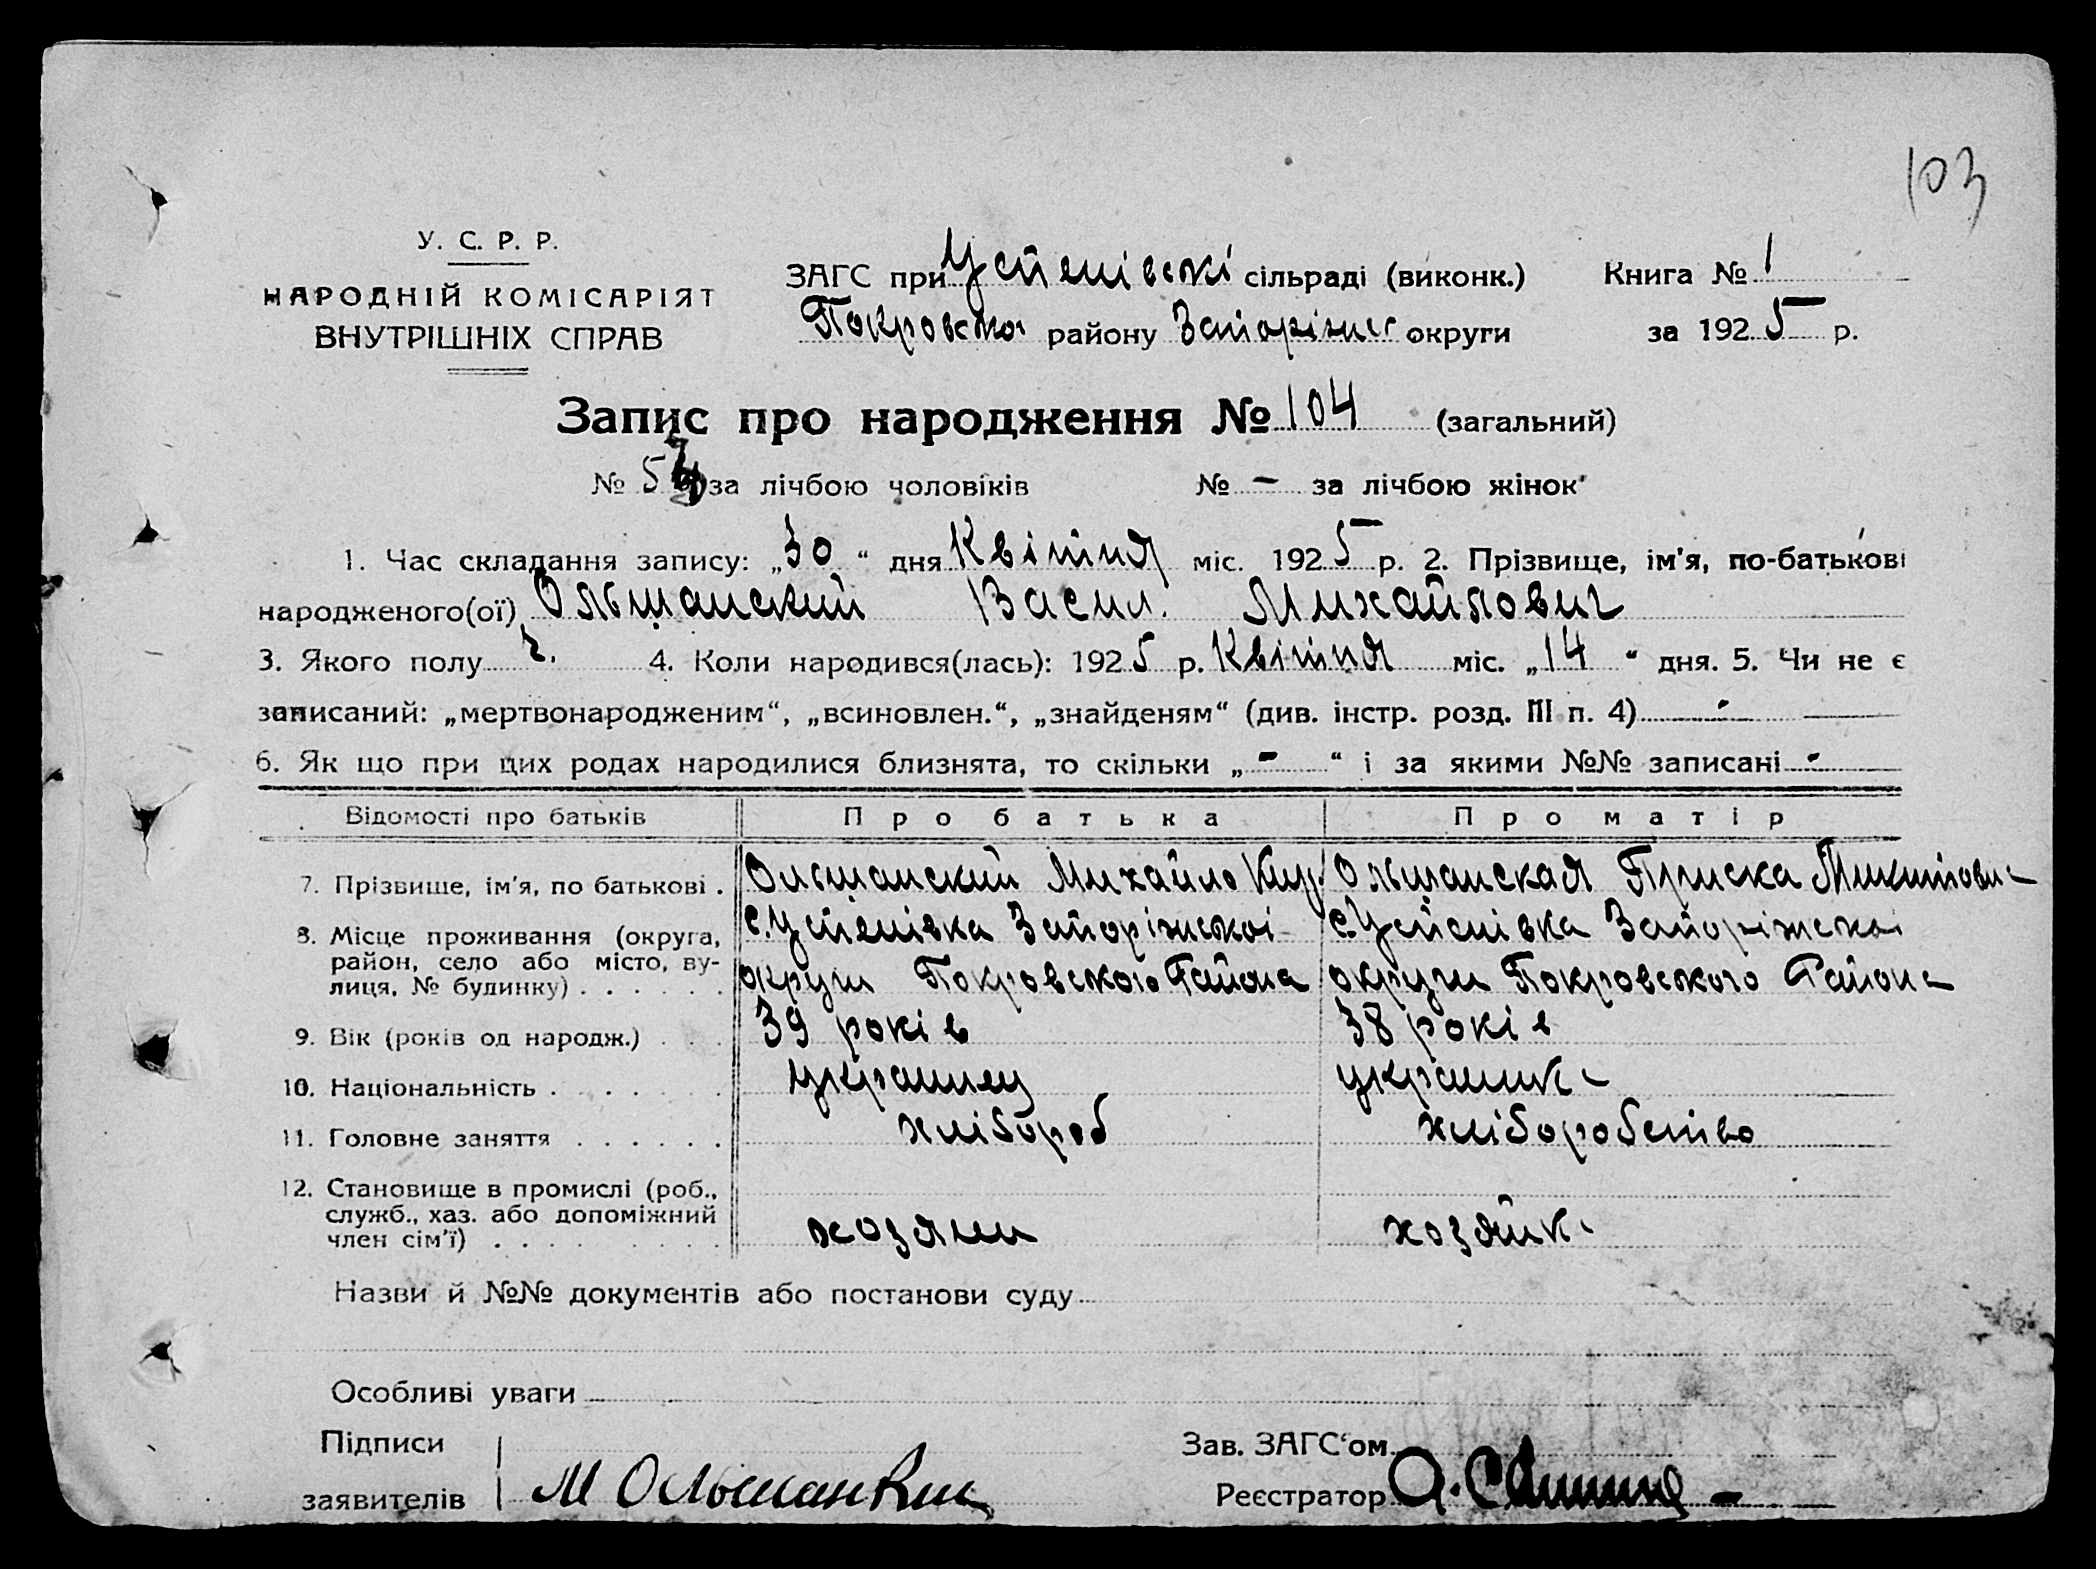 103
У. С. Р. Р.
НАРОДНІЙ КОМІСАРІЯТ
ВНУТРІШНІХ СПРАВ
ЗАГС при Успенівскі сільраді (виконк.) Книга № 1
Покровськ району Запоріжс округи за 1925 р.
Запис про народження № 104 (загальний)
№ 5 за лічбою чоловіків № - за лічбою жінок
1. Час складання запису: „30“ дня Квітня міс. 1925 р. 2. Прізвище, ім'я, по-батькові
народженого(ої) Ольшанский Васил. Михайлович
3. Якого полу ч. 4. Коли народився(лась): 1925 р. Квітня міс. „14“ дня. 5. Чи не є
записаний: „мертвонародженим“, „всиновлен.“, „знайденям“ (див. інстр. розд. III п. 4) -
6. Як що при цих родах народилися близнята, то скільки „-“ і за якими №№ записані -
Відомості про батьків Про батька Про матір
7. Прізвище, ім'я, по батькові . Ольшанский Михайло Ольшанская Приска
8. Місце проживання (округа, с. Успенівка Запоріжськоі с. Успенівка Запоріжскоі
район, село або місто, ву-
лиця, № будинку) . . . . . . округи Покровського Района округи Покровського Района
9. Вік (років од народж.) . . . 39 років 38 років
10. Національність . . . . . . . украинец украинка
11. Головне заняття . . . . . . хлібороб хліборобство
12. Становище в промислі (роб.,
служб., хаз. або допоміжний хозяин хозяйка
член сім'ї) . . . . . . . . .
Назви й №№ документів або постанови суду
Особливі уваги
Підписи Зав. ЗАГС'ом
заявителів М Ольшанский Реєстратор